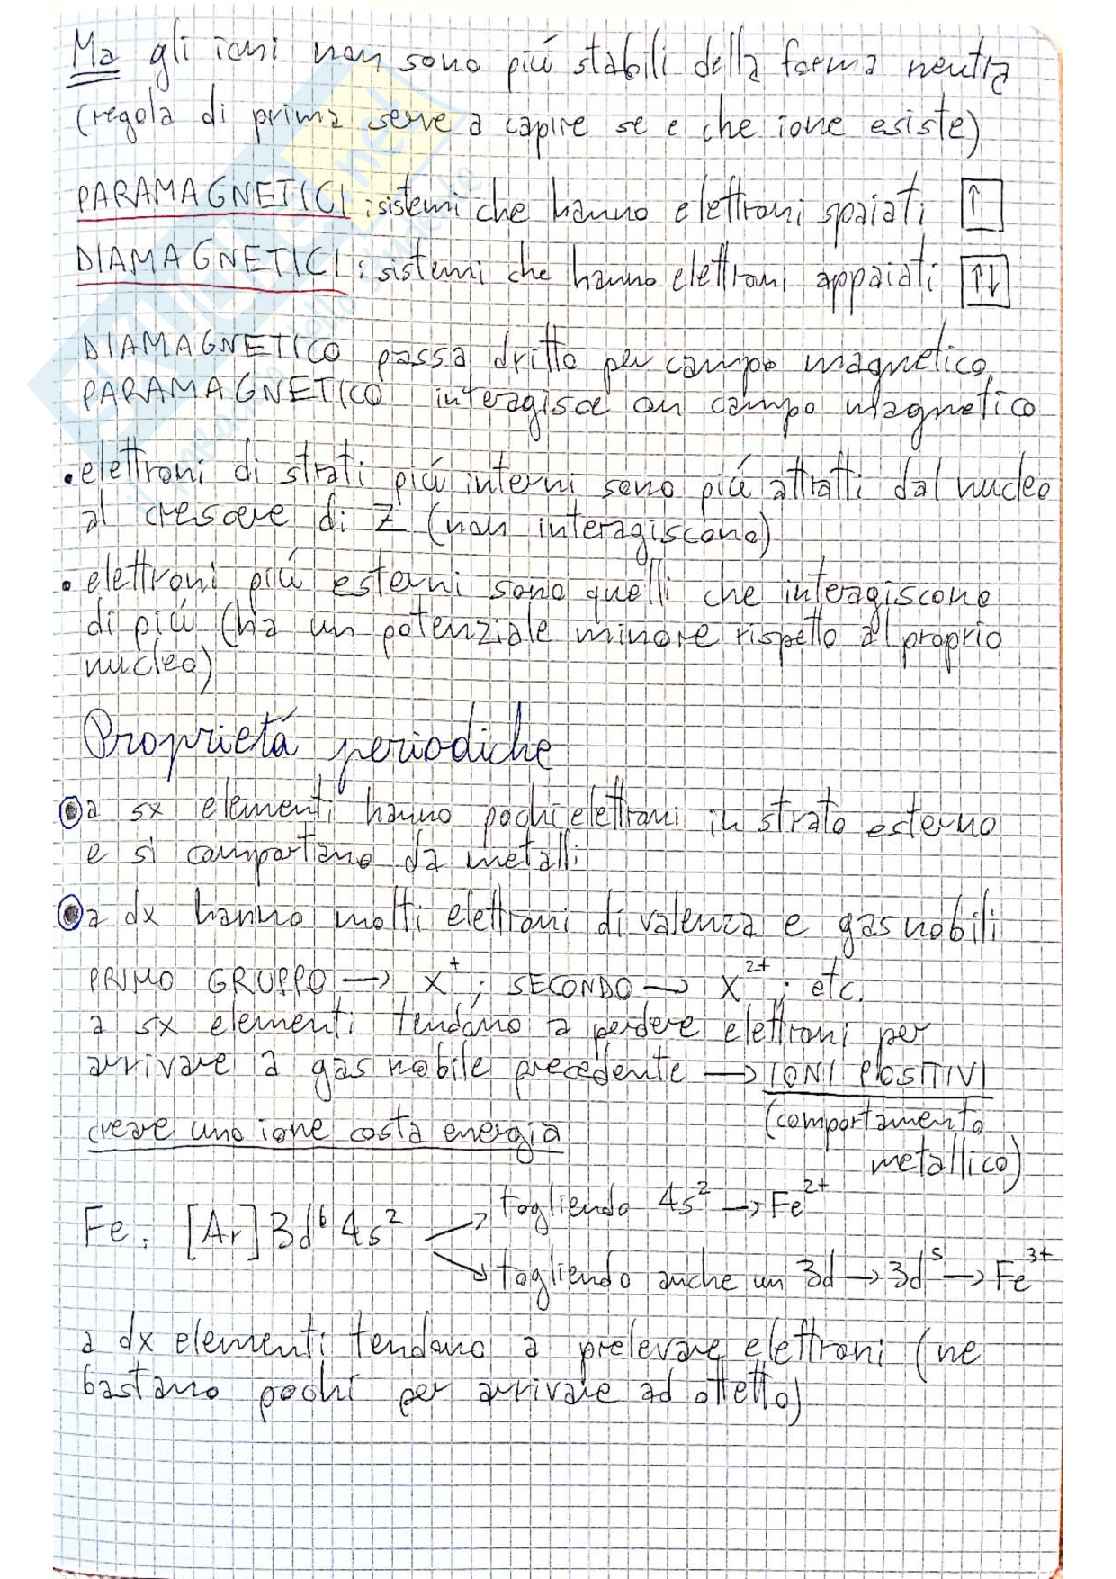 Ma gli ioni non sono piú stabili della forma neutra
(regola di prima serve a capire se e che ione esiste)
PARAMAGNETICI: sistemi che hanno elettroni spaiati ↑
DIAMAGNETICI: sistemi che hanno elettroni appaiati ↑↓
DIAMAGNETICO passa dritto per campo magnetico,
PARAMAGNETICO interagisce con campo magnetico
• elettroni di strati piú interni sono piú attratti dal nucleo
al crescere di Z (non interagiscono)
• elettroni piú esterni sono quelli che interagiscono
di piú (ha un potenziale minore rispetto al proprio
nucleo)
Proprietá periodiche
• a sx elementi hanno pochi elettroni in strato esterno
e si comportano da metalli
• a dx hanno molti elettroni di valenza e gas nobili
PRIMO GRUPPO → X⁺ ; SECONDO → X²⁺ ; etc.
a sx elementi tendono a perdere elettroni per
arrivare a gas nobile precedente → IONI POSITIVI
creare uno ione costa energia (comportamento
metallico)
Fe: [Ar] 3d⁶ 4s² → togliendo 4s² → Fe²⁺
→ togliendo anche un 3d → 3d⁵ → Fe³⁺
a dx elementi tendono a prelevare elettroni (ne
bastano pochi per arrivare ad ottetto)